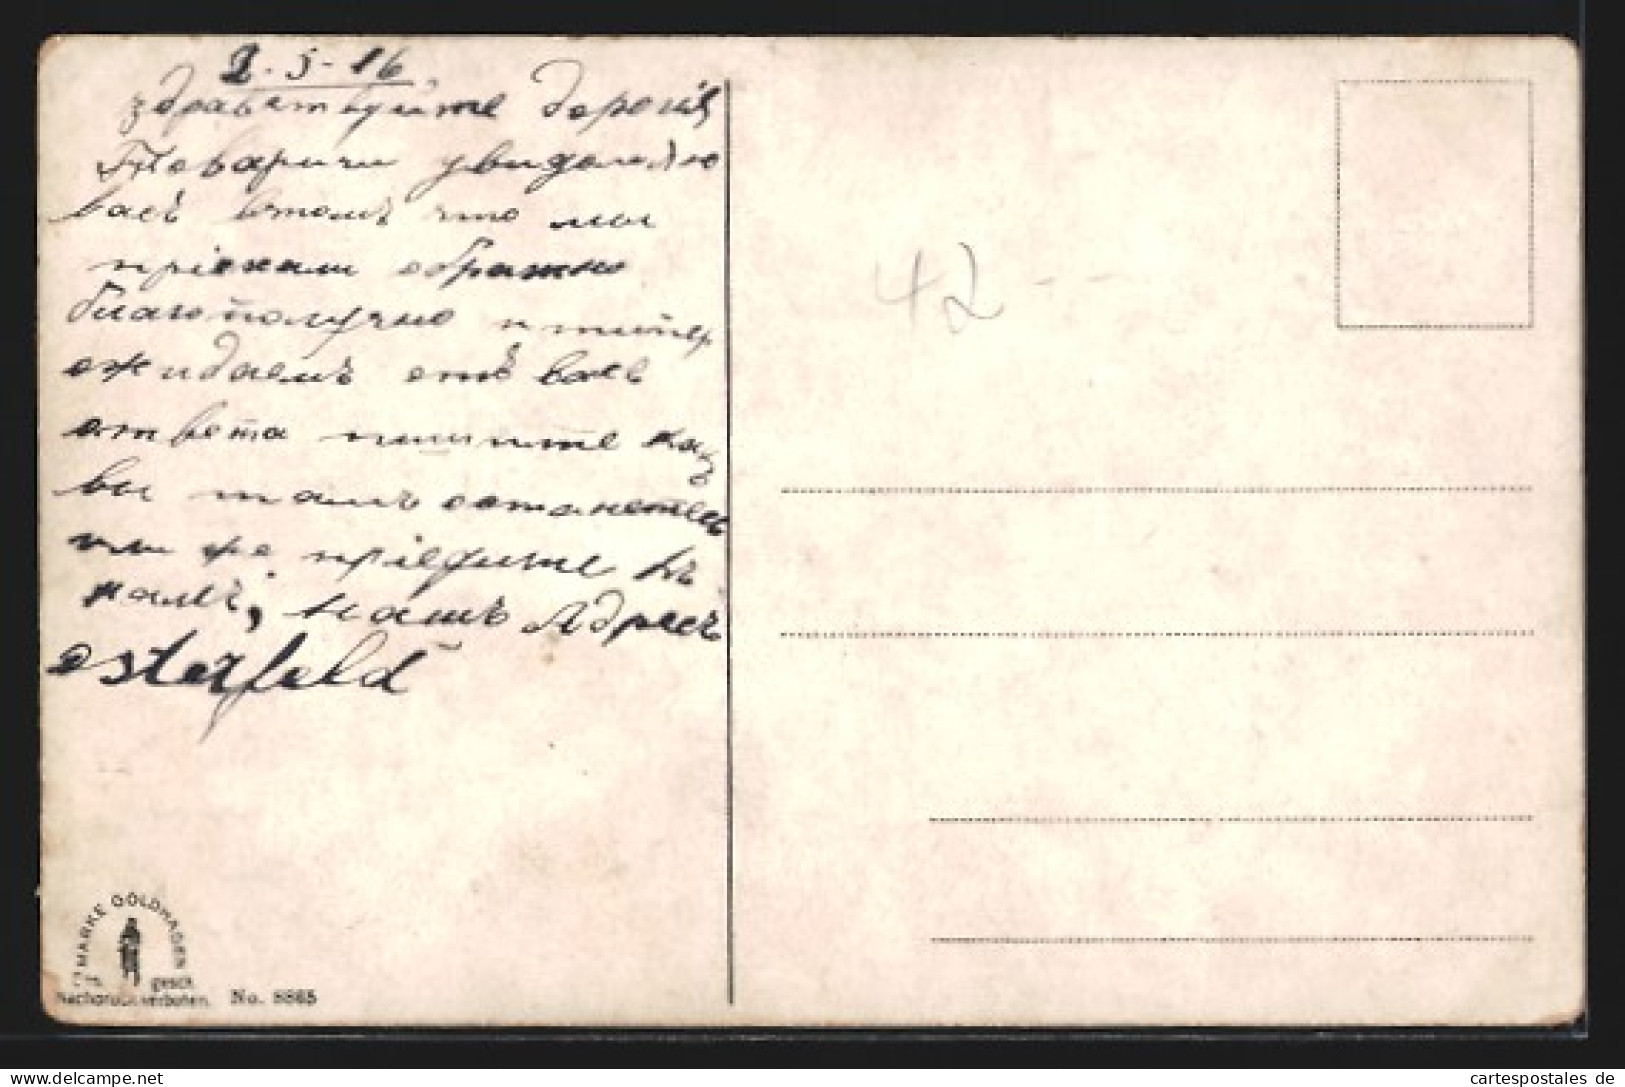 2-5-16
здравствуйте дорогiя
Товаричи уведомляю
васъ втомъ что мы
прiехали обратно
благополучно и типер
ожидаемъ отъ васъ
ответа пишите какъ
вы тамъ останетесь
или же прiедите къ
намъ, Нашъ Адресъ
osterfeld
42
MARKE GOLDHAGEN
gesch.
Nachdruck verboten. No. 8865
cartespostales de